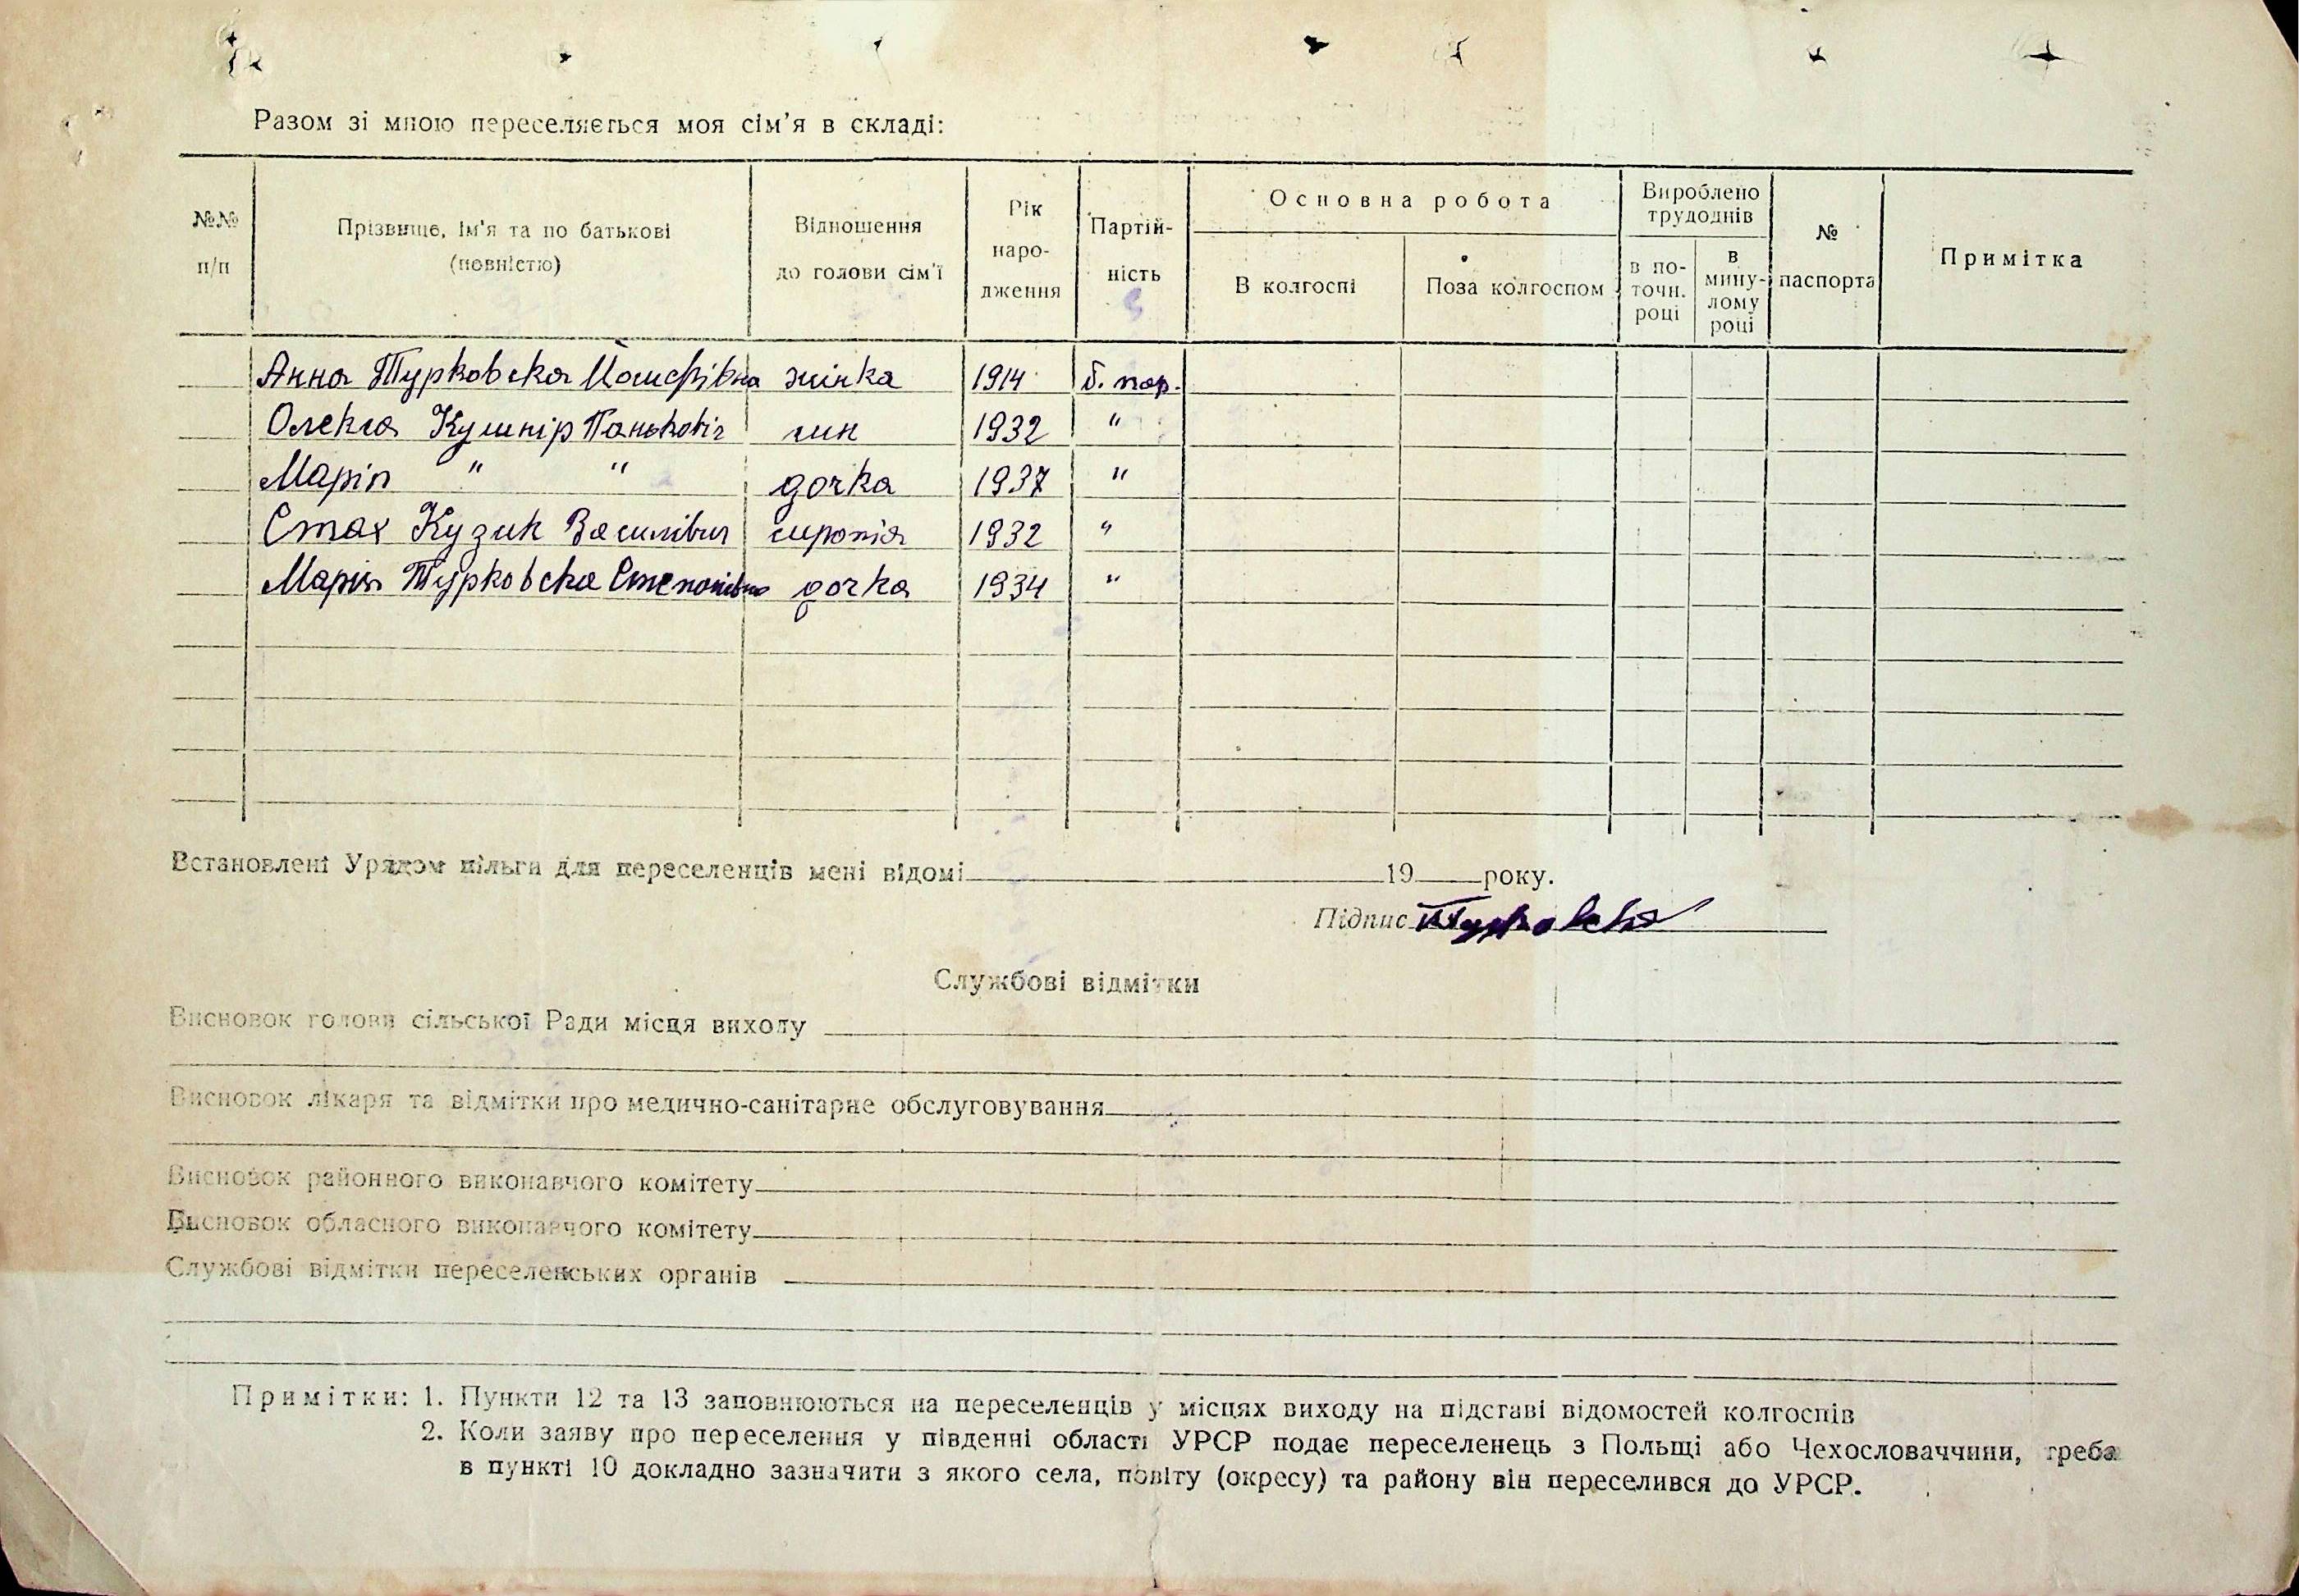 Разом зі мною переселяється моя сім'я в складі:
№№ п/п
Прізвище, ім'я та по батькові (повністю)
Відношення до голови сім'ї
Рік наро-дження
Партій-ність
Основна робота
В колгоспі
Поза колгоспом
Вироблено трудоднів
в по-точн. році
в мину-лому році
№ паспорта
Примітка
Анна Турковська Йосифівна жінка 1914 б. пар.
Олекса Кушнір Панькович син 1932 "
Марія " " дочка 1937 "
Стах Кузик Василівич сирота 1932 "
Марія Турковська Степанівна дочка 1934 "
Встановлені Урядом пільги для переселенців мені відомі 19 року.
Підпис Турковська
Службові відмітки
Висновок голови сільської Ради місця виходу
Висновок лікаря та відмітки про медично-санітарне обслуговування
Висновок районного виконавчого комітету
Висновок обласного виконавчого комітету
Службові відмітки переселенських органів
Примітки: 1. Пункти 12 та 13 заповнюються на переселенців у місцях виходу на підставі відомостей колгоспів
2. Коли заяву про переселення у південні області УРСР подає переселенець з Польщі або Чехословаччини, треба
в пункті 10 докладно зазначити з якого села, повіту (окресу) та району він переселився до УРСР.